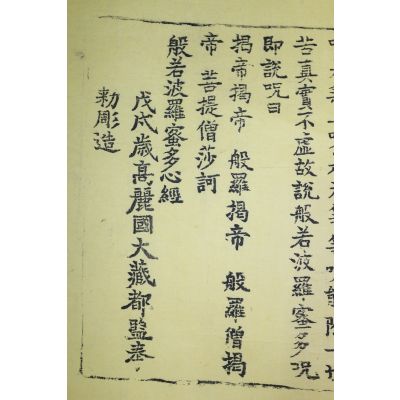 苦真實不虛故說般若波羅蜜多呪
即說呪曰
揭帝揭帝 般羅揭帝 般羅僧揭
帝 菩提僧莎訶
般若波羅蜜多心經
戊戌歲高麗國大藏都監奉
勑彫造